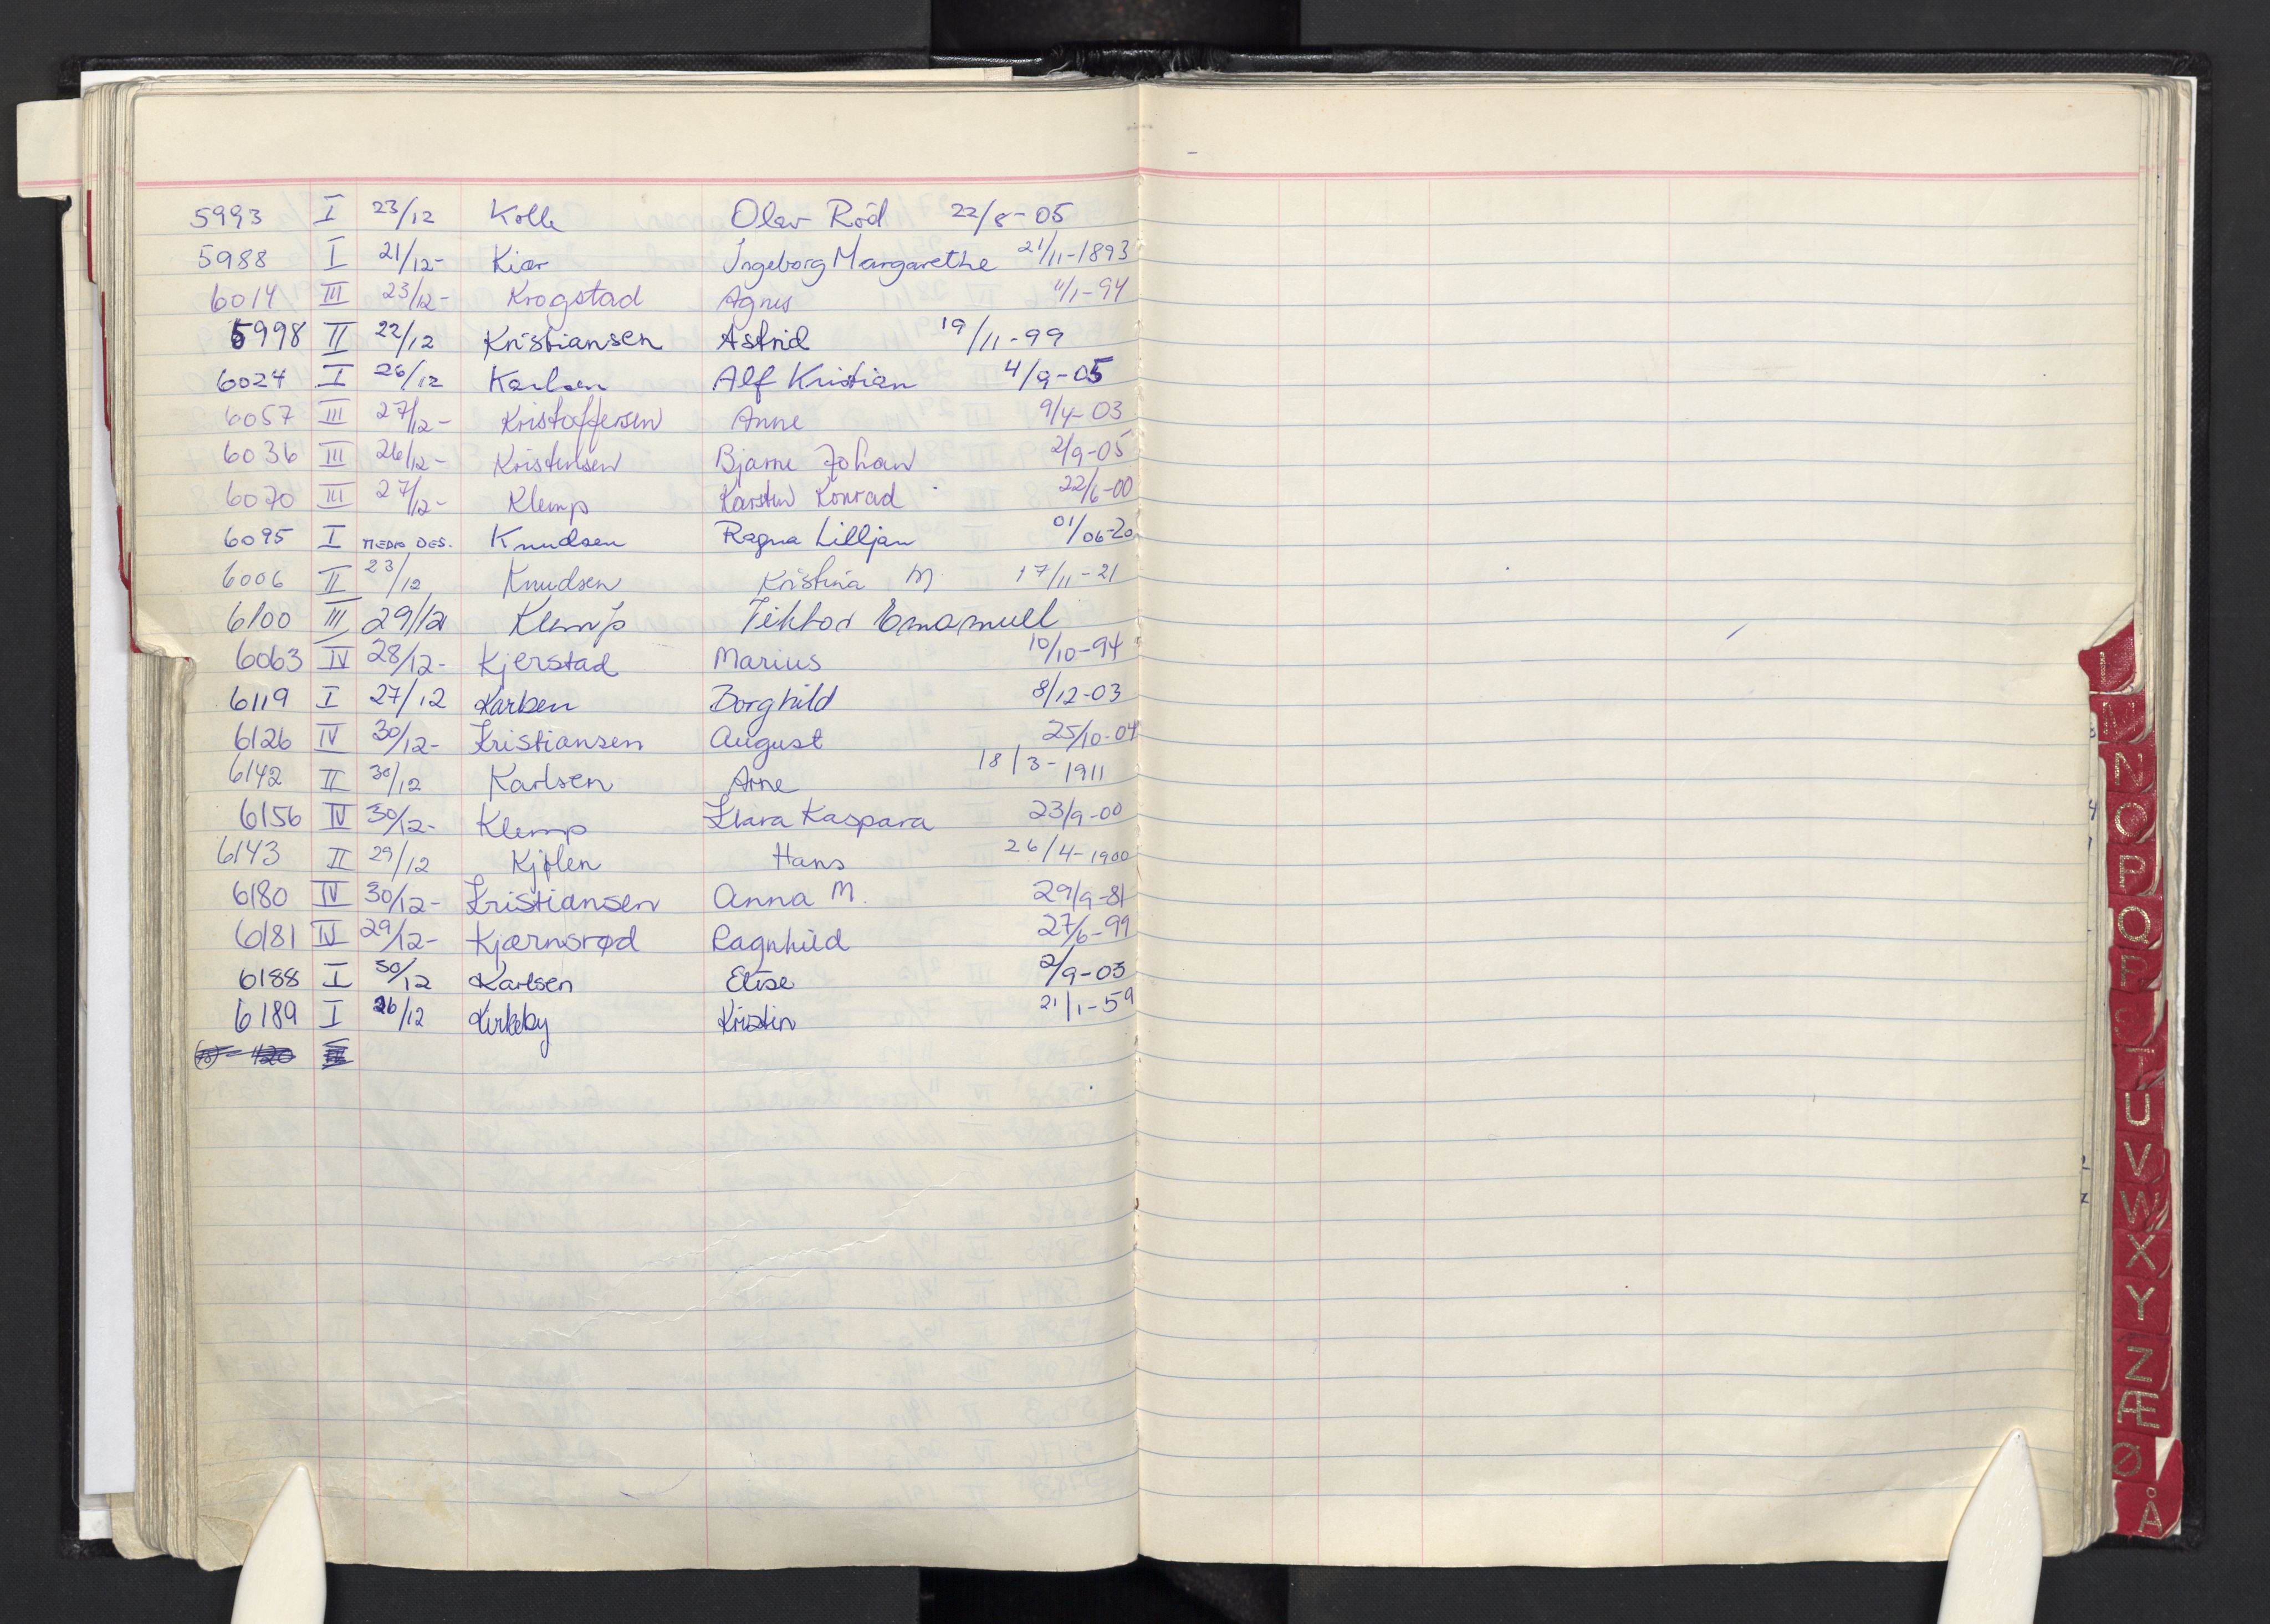 5993 I 23/12 Kolle Olav Röd 22/8-05
5988 I 21/12- Kiær Ingeborg Margarethe 21/11-1893
6014 III 23/12- Krogstad Agnes 11/1-94
5998 II 22/12 Kristiansen Astrid 19/11-99
6024 I 26/12 Karlsen Alf Kristian 4/9-05
6057 III 27/12- Kristoffersen Anne 9/4-03
6036 III 26/12- Kristensen Bjarne Johan 2/9-05
6070 III 27/12- Klemp Karsten Konrad 22/6-00
6095 I MEDIO DES. Knudsen Ragna Lilljan 01/06-20
6006 II 23/12 Knudsen Kristina M. 17/11-21
6100 III 29/12 Klemp Viktor Emamuell
6063 IV 28/12- Kjerstad Marius 10/10-94
6119 I 27/12 Karlsen Borghild 8/12-03
6126 IV 30/12- Kristiansen August 25/10-04
6142 II 30/12 Karlsen Arne 18/3-1911
6156 IV 30/12- Klemp Klara Kaspara 23/9-00
6143 II 29/12 Kjølen Hans 26/4-1900
6180 IV 30/12- Kristiansen Anna M. 29/9-81
6181 IV 29/12- Kjærnsrød Ragnhild 27/6-99
6188 I 30/12 Karlsen Elise 2/9-03
6189 I 26/12 Kirkeby Kristin 21/1-59
L
M
N
O
P
Q
R
S
T
U
V
W
X
Y
Z
Æ
Ø
Å